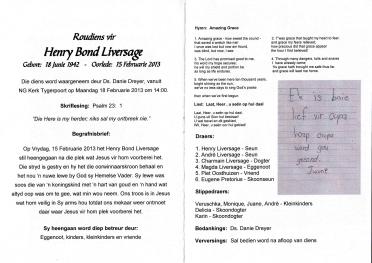 Roudiens vir
Henry Bond Liversage
Gebore: 18 Junie 1942 - Oorlede: 15 Februarie 2013
Die diens word waargeneem deur Ds. Danie Dreyer, vanuit
NG Kerk Tygerpoort op Maandag 18 Februarie 2013 om 14:00.
Skriflesing: Psalm 23: 1
"Die Here is my herder, niks sal my ontbreek nie."
Begrafnisbrief:
Op Vrydag, 15 Februarie 2013 het Henry Bond Liversage
stil heengegaan na die plek wat Jesus vir hom voorberei het.
Die stryd is gestry en hy het die oorwinnaarskroon behaal en
het nou 'n nuwe lewe by God sy Hemelse Vader. Sy lewe was
soos die van 'n koningskind met 'n hart van goud en 'n hand wat
altyd oop was om te gee, wat min wou neem. Ons troos is in Jesus
wat hom veilig in Sy arms hou totdat ons mekaar weer ontmoet
daar waar Jesus vir hom plek voorberei het.
Sy heengaan word diep betreur deur:
Eggenoot, kinders, kleinkinders en vriende
Hymn: Amazing Grace
1. Amazing grace - how sweet the sound -
that saved a wretch like me!
I once was lost but now am found,
was blind, but now I see.
2. T'was grace that taught my heart to fear,
and grace my fears relieved;
how precious did that grace appear
the hour I first believed!
3. The Lord has promised good to me,
his word my hope secures;
he will my shield and portion be
as long as life endures.
4. Through many dangers, toils and snares
I have already come.
'Tis grace hath brought me safe thus far,
and grace will lead me home.
5. When we've been here ten thousand years,
bright shining as the sun,
we've no less days to sing God's praise
than when we've first begun.
Lied: Laat, Heer, u seën op hul daal
Laat, Heer, u seën op hul daal
Draers:
1. Henry Liversage - Seun
2. André Liversage - Seun
3. Charmain Liversage - Dogter
4. Magda Liversage - Eggenoot
5. Piet Oosthuizen - Vriend
6. Eugene Pretorius - Skoonseun
Slippedraers:
Veruschka, Monique, Juane, André - Kleinkinders
Delicia - Skoondogter
Karin - Skoondogter
Bedanking: Ds. Danie Dreyer
Verversings: Sal bedien word na afloop van diens
Ek is baie
lief vir Oupa
hoop oupa
word gou
gesond.